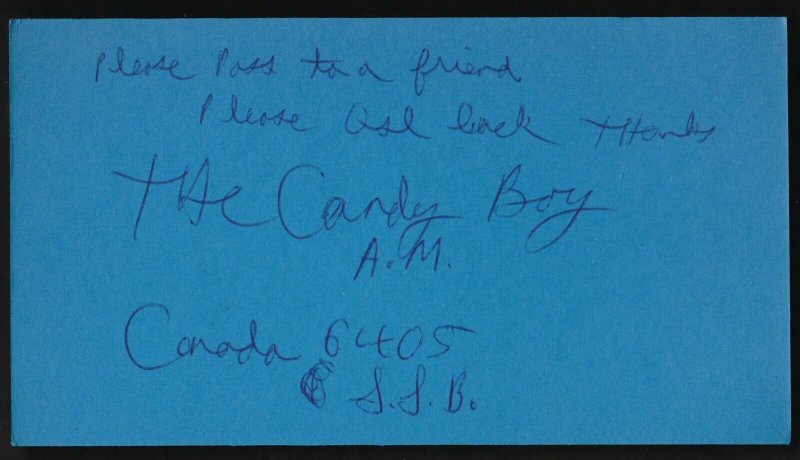 Please Pass to a friend
Please Qsl back Thanks
THe Candy Boy
A.M.
Canada 6405
S.S.B.